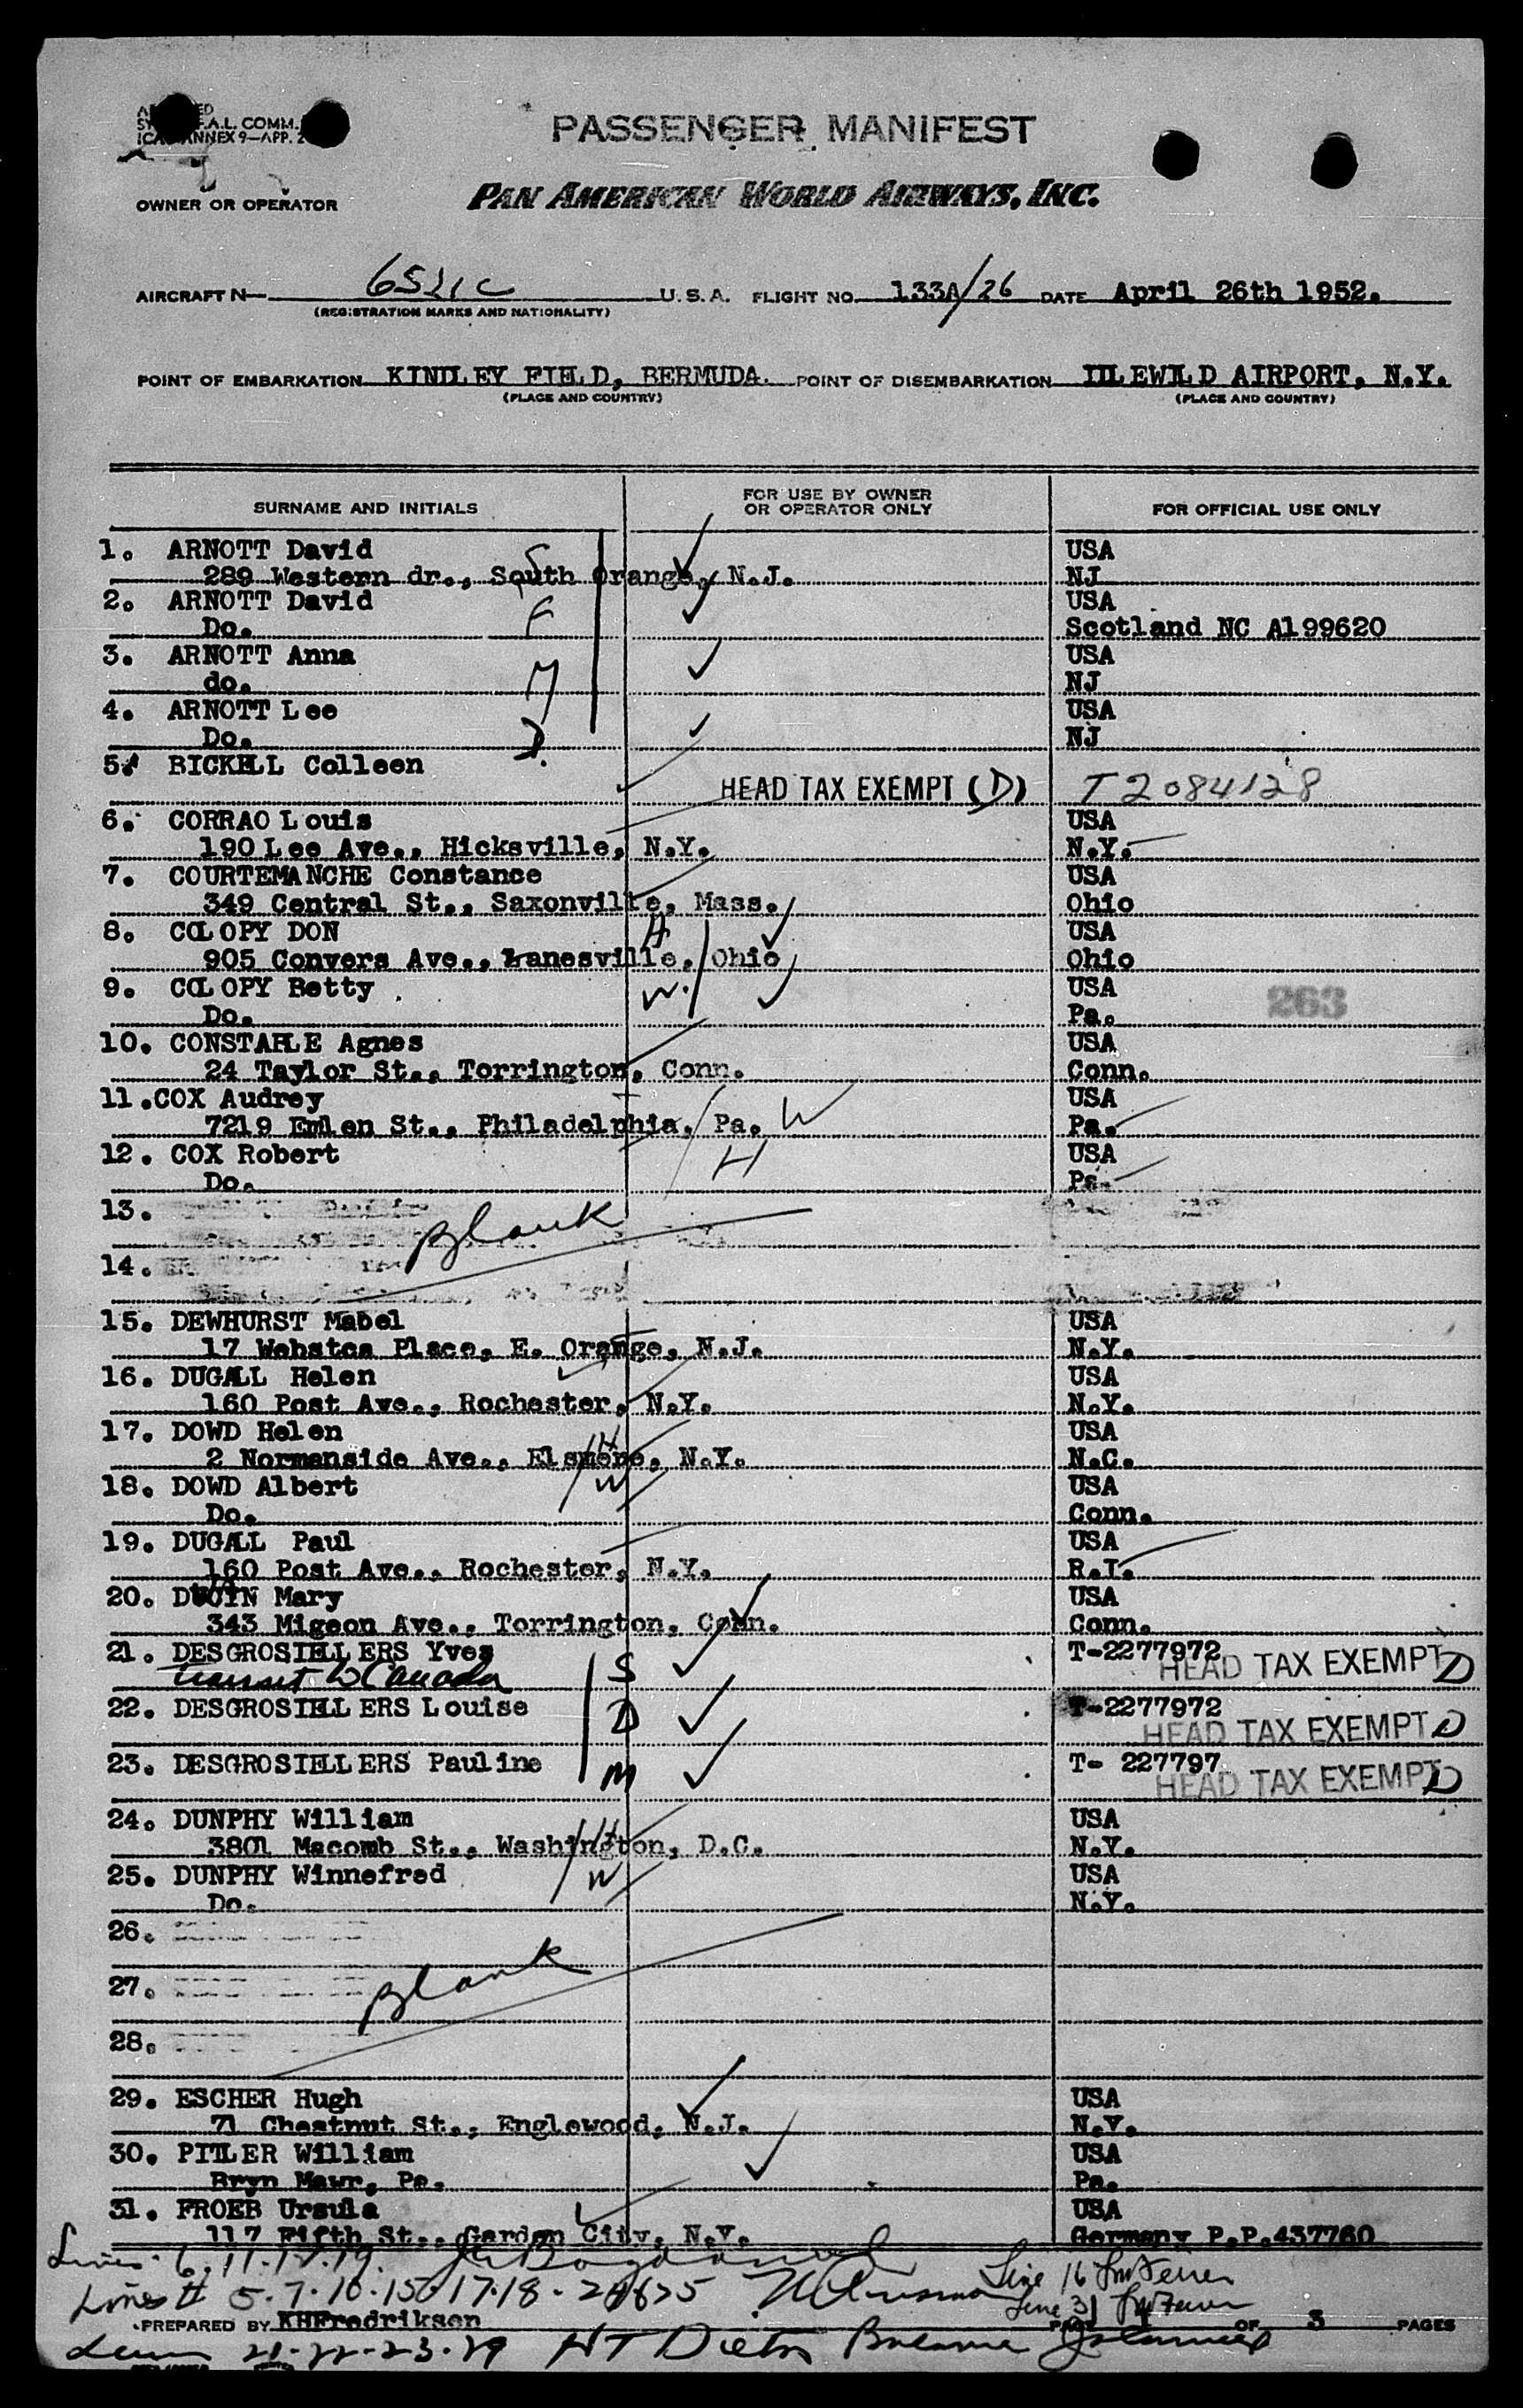 F.A.L. COMM.
ANNEX 9—APP. 2
PASSENGER MANIFEST
OWNER OR OPERATOR
PAN AMERICAN WORLD AIRWAYS, INC.
AIRCRAFT N— 6521C U.S.A. FLIGHT NO. 133A/26 DATE April 26th 1952.
(REGISTRATION MARKS AND NATIONALITY)
POINT OF EMBARKATION KINDLEY FIELD, BERMUDA. POINT OF DISEMBARKATION IDLEWILD AIRPORT, N.Y.
(PLACE AND COUNTRY) (PLACE AND COUNTRY)
SURNAME AND INITIALS FOR USE BY OWNER OR OPERATOR ONLY FOR OFFICIAL USE ONLY
1. ARNOTT David S USA
289 Western dr., South Orange, N.J. NJ
2. ARNOTT David F USA
Do. Scotland NC A199620
3. ARNOTT Anna M USA
do. NJ
4. ARNOTT Lee D. USA
Do. NJ
5. BICKELL Colleen
HEAD TAX EXEMPT (D) T2084128
6. CORRAO Louis USA
190 Lee Ave., Hicksville, N.Y. N.Y.
7. COURTEMANCHE Constance USA
349 Central St., Saxonville, Mass. Ohio
8. COLOPY DON H USA
905 Convers Ave., Zanesville, Ohio Ohio
9. COLOPY Betty W. USA 263
Do. Pa.
10. CONSTABLE Agnes USA
24 Taylor St., Torrington, Conn. Conn.
11. COX Audrey USA
7219 Emlen St., Philadelphia, Pa. W Pa.
12. COX Robert H USA
Do. Pa.
13. Blank
14.
15. DEWHURST Mabel USA
17 Webstca Place, E. Orange, N.J. N.Y.
16. DUGALL Helen USA
160 Post Ave., Rochester, N.Y. N.Y.
17. DOWD Helen H USA
2 Normanside Ave., Elsmere, N.Y. N.C.
18. DOWD Albert W USA
Do. Conn.
19. DUGALL Paul USA
160 Post Ave., Rochester, N.Y. R.I.
20. Mary USA
343 Migeon Ave., Torrington, Conn. Conn.
21. DESGROSIELLERS Yves S T-2277972
transit to Canada HEAD TAX EXEMPT D
22. DESGROSIELLERS Louise D T-2277972
HEAD TAX EXEMPT D
23. DESGROSIELLERS Pauline M T- 227797
HEAD TAX EXEMPT D
24. DUNPHY William H USA
3801 Macomb St., Washington, D.C. N.Y.
25. DUNPHY Winnefred W USA
Do. N.Y.
26.
27. Blank
28.
29. ESCHER Hugh USA
71 Chestnut St., Englewood, N.J. N.Y.
30. PITLER William USA
Bryn Mawr, Pa. Pa.
31. FROEB Ursula USA
117 Fifth St., Garden City, N.Y. Germany P.P.437760
Lines 6.11.12.19. Line 16
Lines # 5.7.10.15.17.18.24&25 Line 31
PREPARED BY KHFredriksen PAGE OF 3 PAGES
21-22-23-29 HT Balance